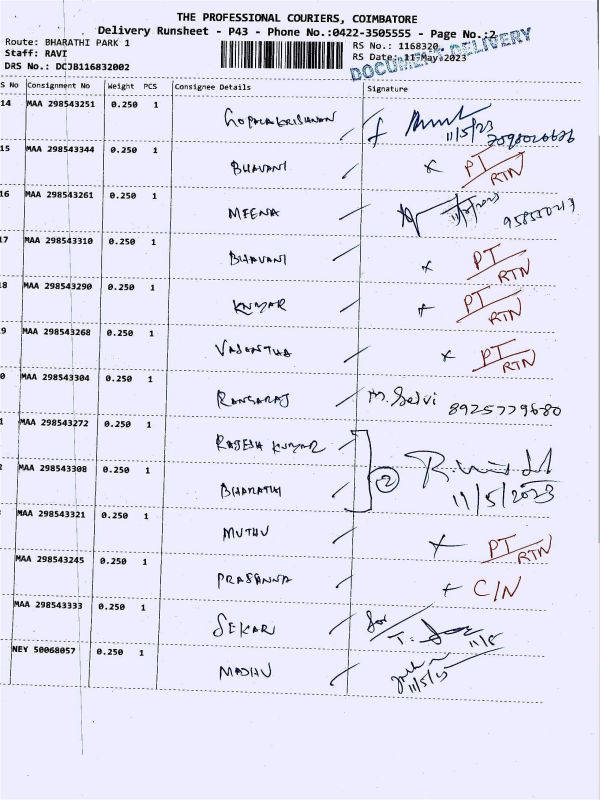 THE PROFESSIONAL COURIERS, COIMBATORE
Delivery Runsheet - P43 - Phone No.:0422-3505555 - Page No.:2
Route: BHARATHI PARK 1
Staff: RAVI
DRS No.: DCJB116832002
RS No.: 1168320
RS Date: 11 May 2023
DOCUMENT DELIVERY
S No Consignment No Weight PCS Consignee Details Signature
14 MAA 298543251 0.250 1 GOPALAKRISHNAN 11/5/23
15 MAA 298543344 0.250 1 BHAVANI x PT/RTN
16 MAA 298543261 0.250 1 MEENA
17 MAA 298543310 0.250 1 BHAVANI x PT/RTN
8 MAA 298543290 0.250 1 KUMAR x PT/RTN
9 MAA 298543268 0.250 1 VASANTHA x PT/RTN
0 MAA 298543304 0.250 1 RANGARAJ M. Selvi 8925779680
1 MAA 298543272 0.250 1 RAJESH KUMAR
2 MAA 298543308 0.250 1 BHARATHI 2 11/5/2023
MAA 298543321 0.250 1 MUTHU x PT/RTN
MAA 298543245 0.250 1 PRASANNA x C/N
MAA 298543333 0.250 1 SEKAR for T. 11/5
NEY 50068057 0.250 1 MADHU 11/5/23